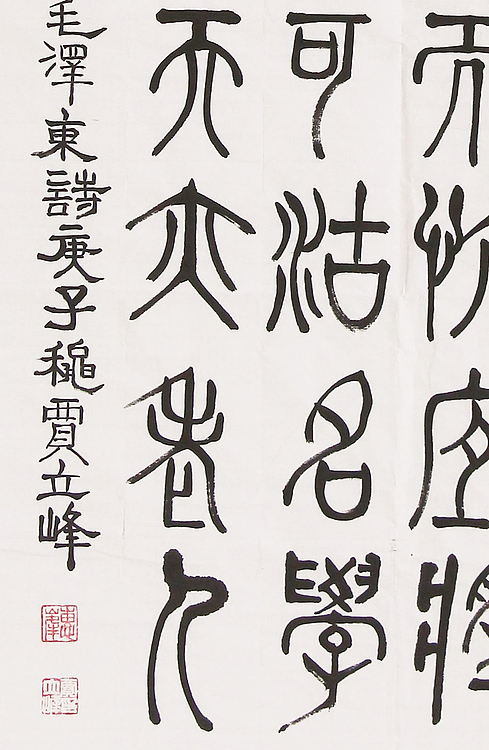 而忼宜將
可沽名學
天亦老人
毛澤東詩庚子穐賈立峰